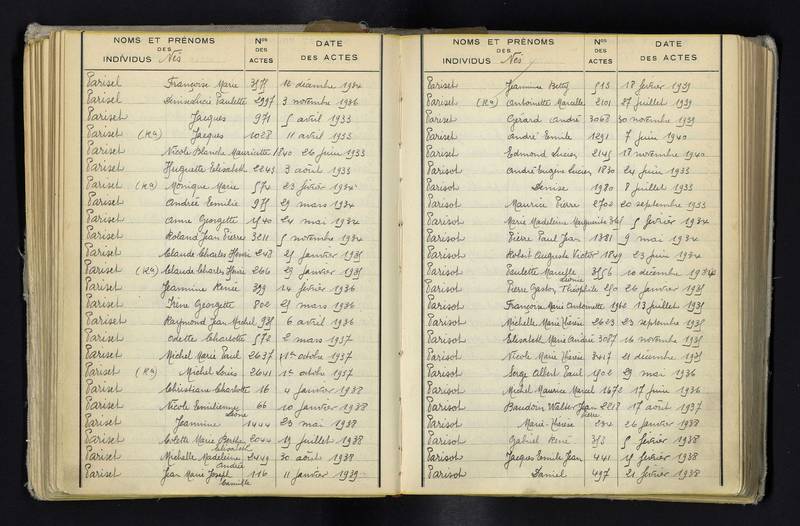 NOMS ET PRÉNOMS DES INDIVIDUS Nés
Nos DES ACTES
DATE DES ACTES
Pariset Françoise Marie 12 décembre 1934
Pariset Paulette 2997 3 novembre 1936
Pariset Jacques 971 5 avril 1933
Pariset (Ra) Jacques 1028 11 avril 1933
Pariset Nicole Blanche Mauricette 1840 26 juin 1933
Pariset Huguette Elisabeth 2243 3 août 1933
Pariset (Ra) Monique Marie 574 23 février 1934
Pariset Andrée Emilie 975 29 mars 1934
Pariset Anne Georgette 1540 24 mai 1934
Pariset Roland Jean Pierre 3211 5 novembre 1934
Pariset Claude Charles Henri 248 25 janvier 1935
Pariset (Ra) Claude Charles Henri 266 29 janvier 1935
Pariset Jeannine Renée 399 14 février 1936
Pariset Irène Georgette 802 25 mars 1936
Pariset Raymond Jean Michel 935 6 avril 1936
Pariset Odette Charlotte 572 2 mars 1937
Pariset Michel Marie Paul 2637 1er octobre 1937
Pariset (Ra) Michel Louis 2641 1er octobre 1937
Pariset Christiane Charlotte 16 4 janvier 1938
Pariset Nicole Emilienne 66 10 janvier 1938
Pariset Jeannine Léone 1444 23 mai 1938
Pariset Colette Marie Berthe 2044 19 juillet 1938
Pariset Michelle Madeleine Elisabeth 2449 30 août 1938
Pariset Jean Marie Joseph André Camille 116 11 janvier 1939
NOMS ET PRÉNOMS DES INDIVIDUS Nés
Nos DES ACTES
DATE DES ACTES
Pariset Jeannine Betty 513 18 février 1939
Pariset (Ra) Antoinette Marcelle 2101 27 juillet 1939
Pariset Gérard André 3068 30 novembre 1939
Pariset André Emile 1291 7 juin 1940
Pariset Edmond Lucien 2145 18 novembre 1940
Parisot André Eugène Lucien 1830 24 juin 1933
Parisot Denise 1980 8 juillet 1933
Parisot Maurice Pierre 2702 20 septembre 1933
Parisot Marie Madeleine Marguerite 345 5 février 1934
Parisot Pierre Paul Jean 1381 9 mai 1934
Parisot Robert Auguste Victor 1849 23 juin 1934
Parisot Paulette Marcelle 3556 10 décembre 1934
Parisot Pierre Gaston Léonce Théophile 250 26 janvier 1935
Parisot Françoise Marie Antoinette 1962 13 juillet 1935
Parisot Michelle Marie Thérèse 2603 23 septembre 1935
Parisot Elisabeth Marie Andrée 3087 16 novembre 1935
Parisot Nicole Marie Thérèse 3417 21 décembre 1935
Parisot Serge Albert Paul 1502 29 mai 1936
Parisot Michel Maurice Marcel 1672 17 juin 1936
Parisot Baudoin Walter Jean Pierre 2218 17 août 1937
Parisot Marie-Thérèse 234 26 janvier 1938
Parisot Gabriel René 313 5 février 1938
Parisot Jacques Emile Jean 441 15 février 1938
Parisot Daniel 497 21 février 1938